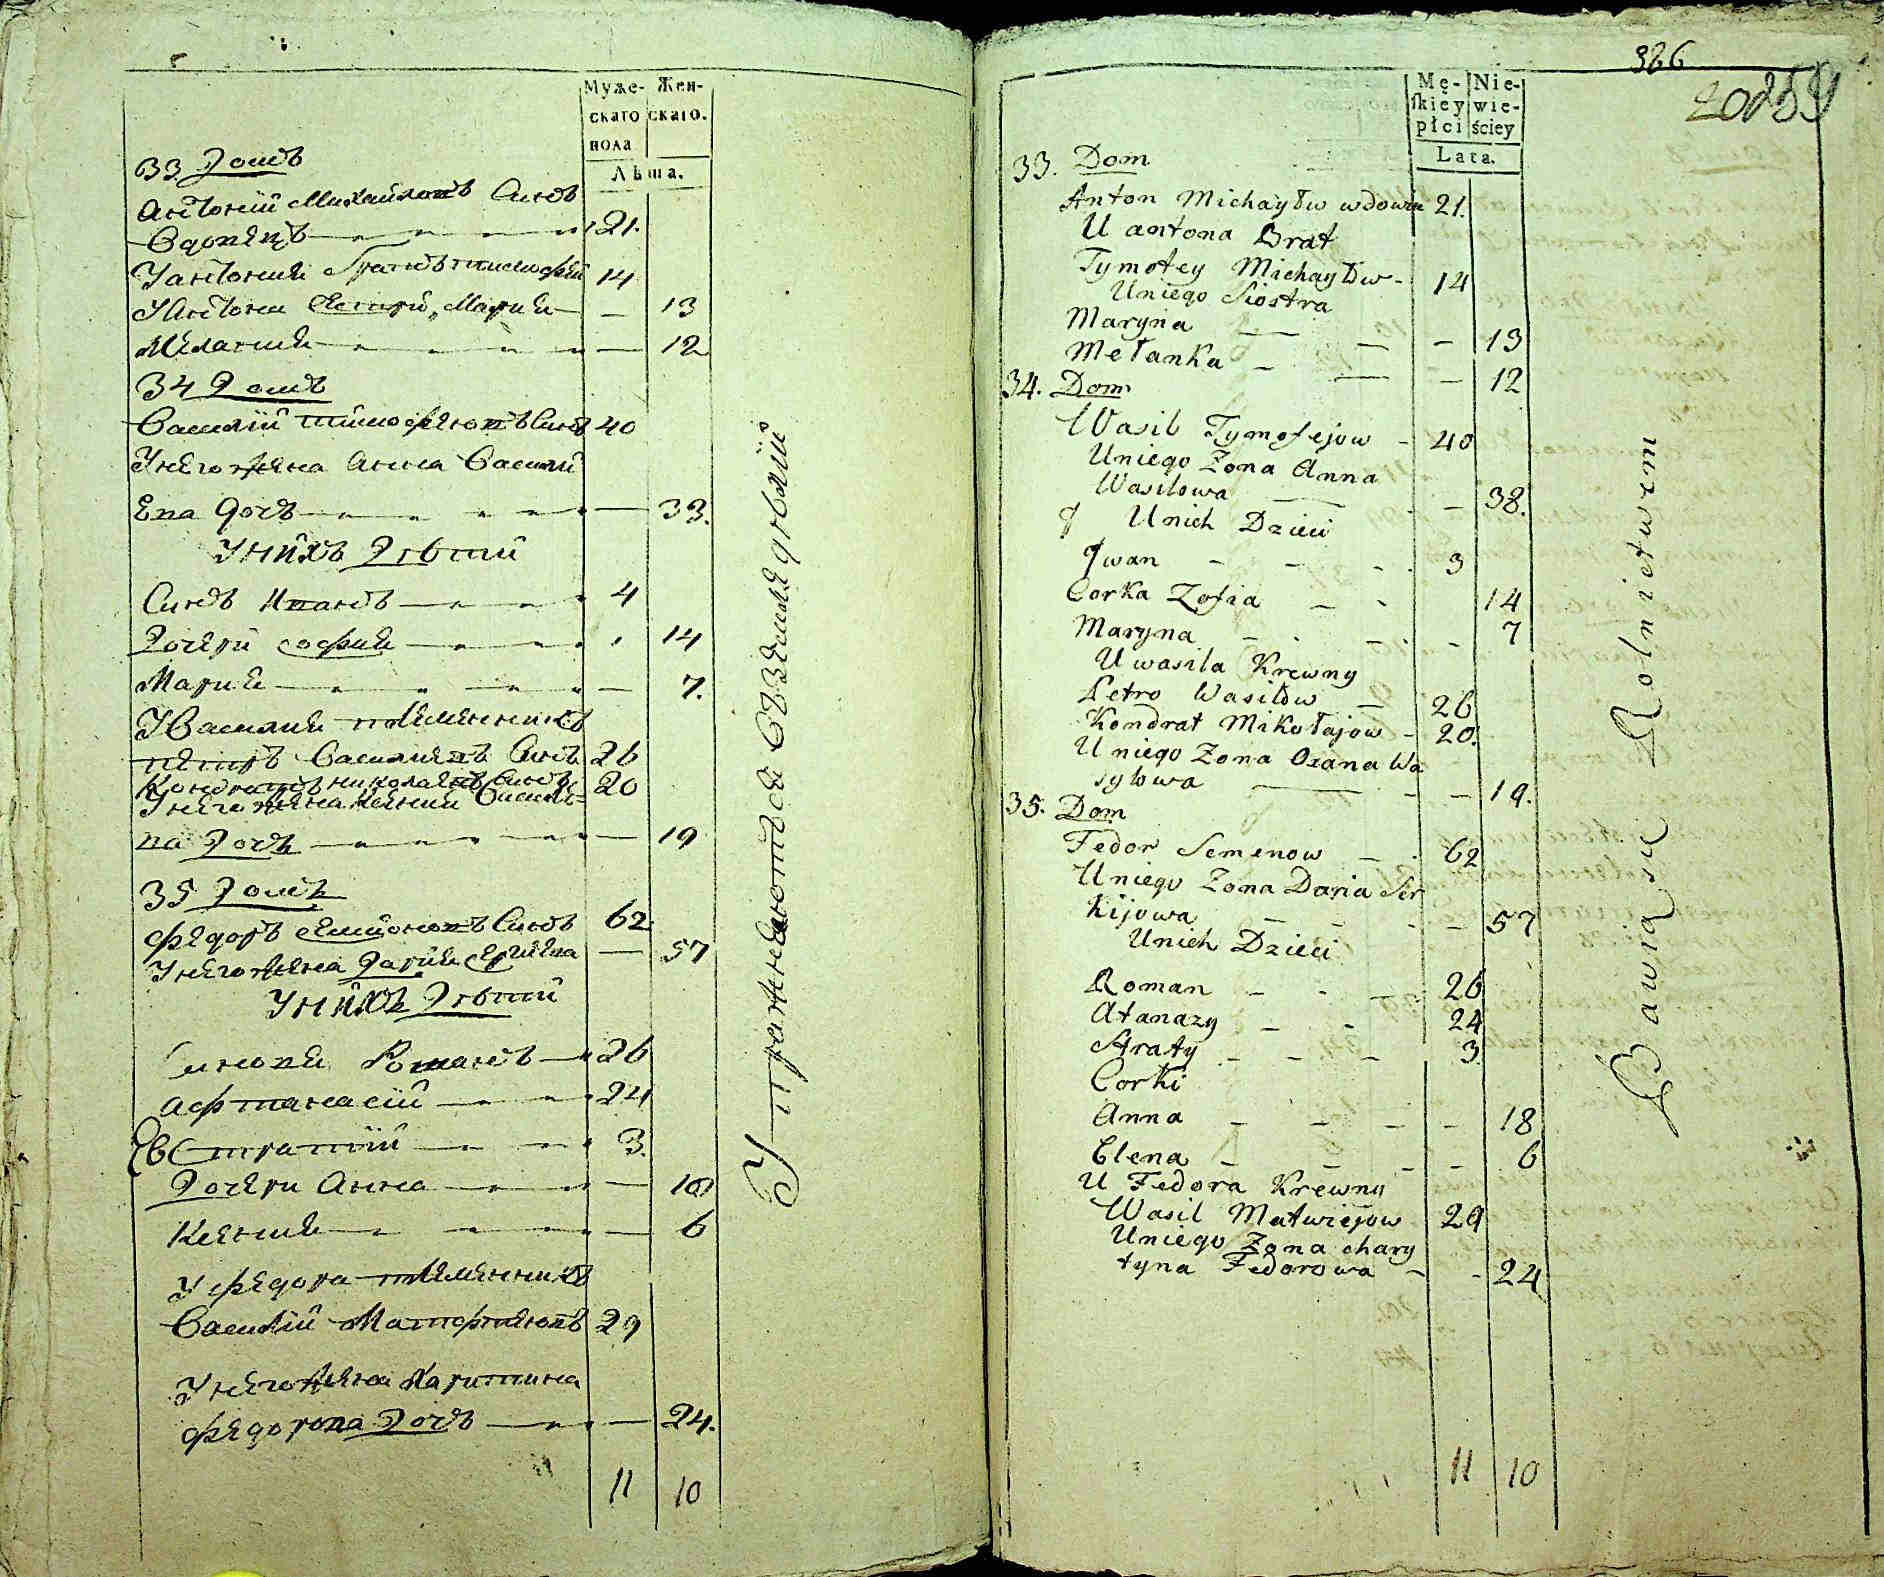 Муже-
скаго
пола
Жен-
скаго.
Лѣта.
33 Домъ
Антоній Михайловъ Синъ
Вдовецъ 21.
У Антонія Братъ Тимофій 14
У Антона Сестри, Марія — 13
Меланія — 12
34 Домъ
Василій Тимофѣювъ Синъ 40
У него жена Анна Василі
ева Дочъ — 33.
У нихъ Дѣти
Синъ Иванъ 4
Дочери Софія 14
Марія — 7.
У Василия племенникъ
Петръ Василиевъ Синъ 26
Кондратъ Николаевъ Синъ 20
У него жена Ксенія Василіе=
ва Дочъ — 19
35 Домъ
Федоръ Семионовъ Синъ 62
У него жена Дарія — 57
У нихъ Дѣти
Синови Романъ 26
Афтанасій 24
Евстратій 3.
Дочери Анна — 18
Ксения — 6
У Федора племенникъ
Василій Матфѣювъ 29
У него жена Харитина
Федорова Дочъ — 24.
11 10
Упражняются въ земледѣлїи
386
20259
Mę-
skiey
płci
Nie-
wie-
ściey
Lata.
33. Dom
Anton Michayłw wdowiu 21.
U antona Brat
Tymotey Michayłow - 14
Uniego Siostra
Maryna — 13
Mełanka — 12
34. Dom
Wasil Tymofejow - 40
Uniego Zona Anna
Wasilowa — 38.
Unich Dzieci
Jwan 3
Corka Zofia 14
Maryna - 7
U wasila Krewny
Petro Wasilow 26
Kondrat Mikołajow - 20.
U niego Zona Oxana Wa
sylowa — 19.
35. Dom
Fedor Semenow 62
Uniego Zona Daria Ser
kijowa — 57
Unich Dzieci
Roman 26
Atanazy 24
Straty 3.
Corki
Anna - 18
Elena - 6
U Fedora Krewny
Wasil Matwiejow 29
Uniego Zona chary
tyna Fedorowa - 24
11 10
Bawią się Rolnictwem